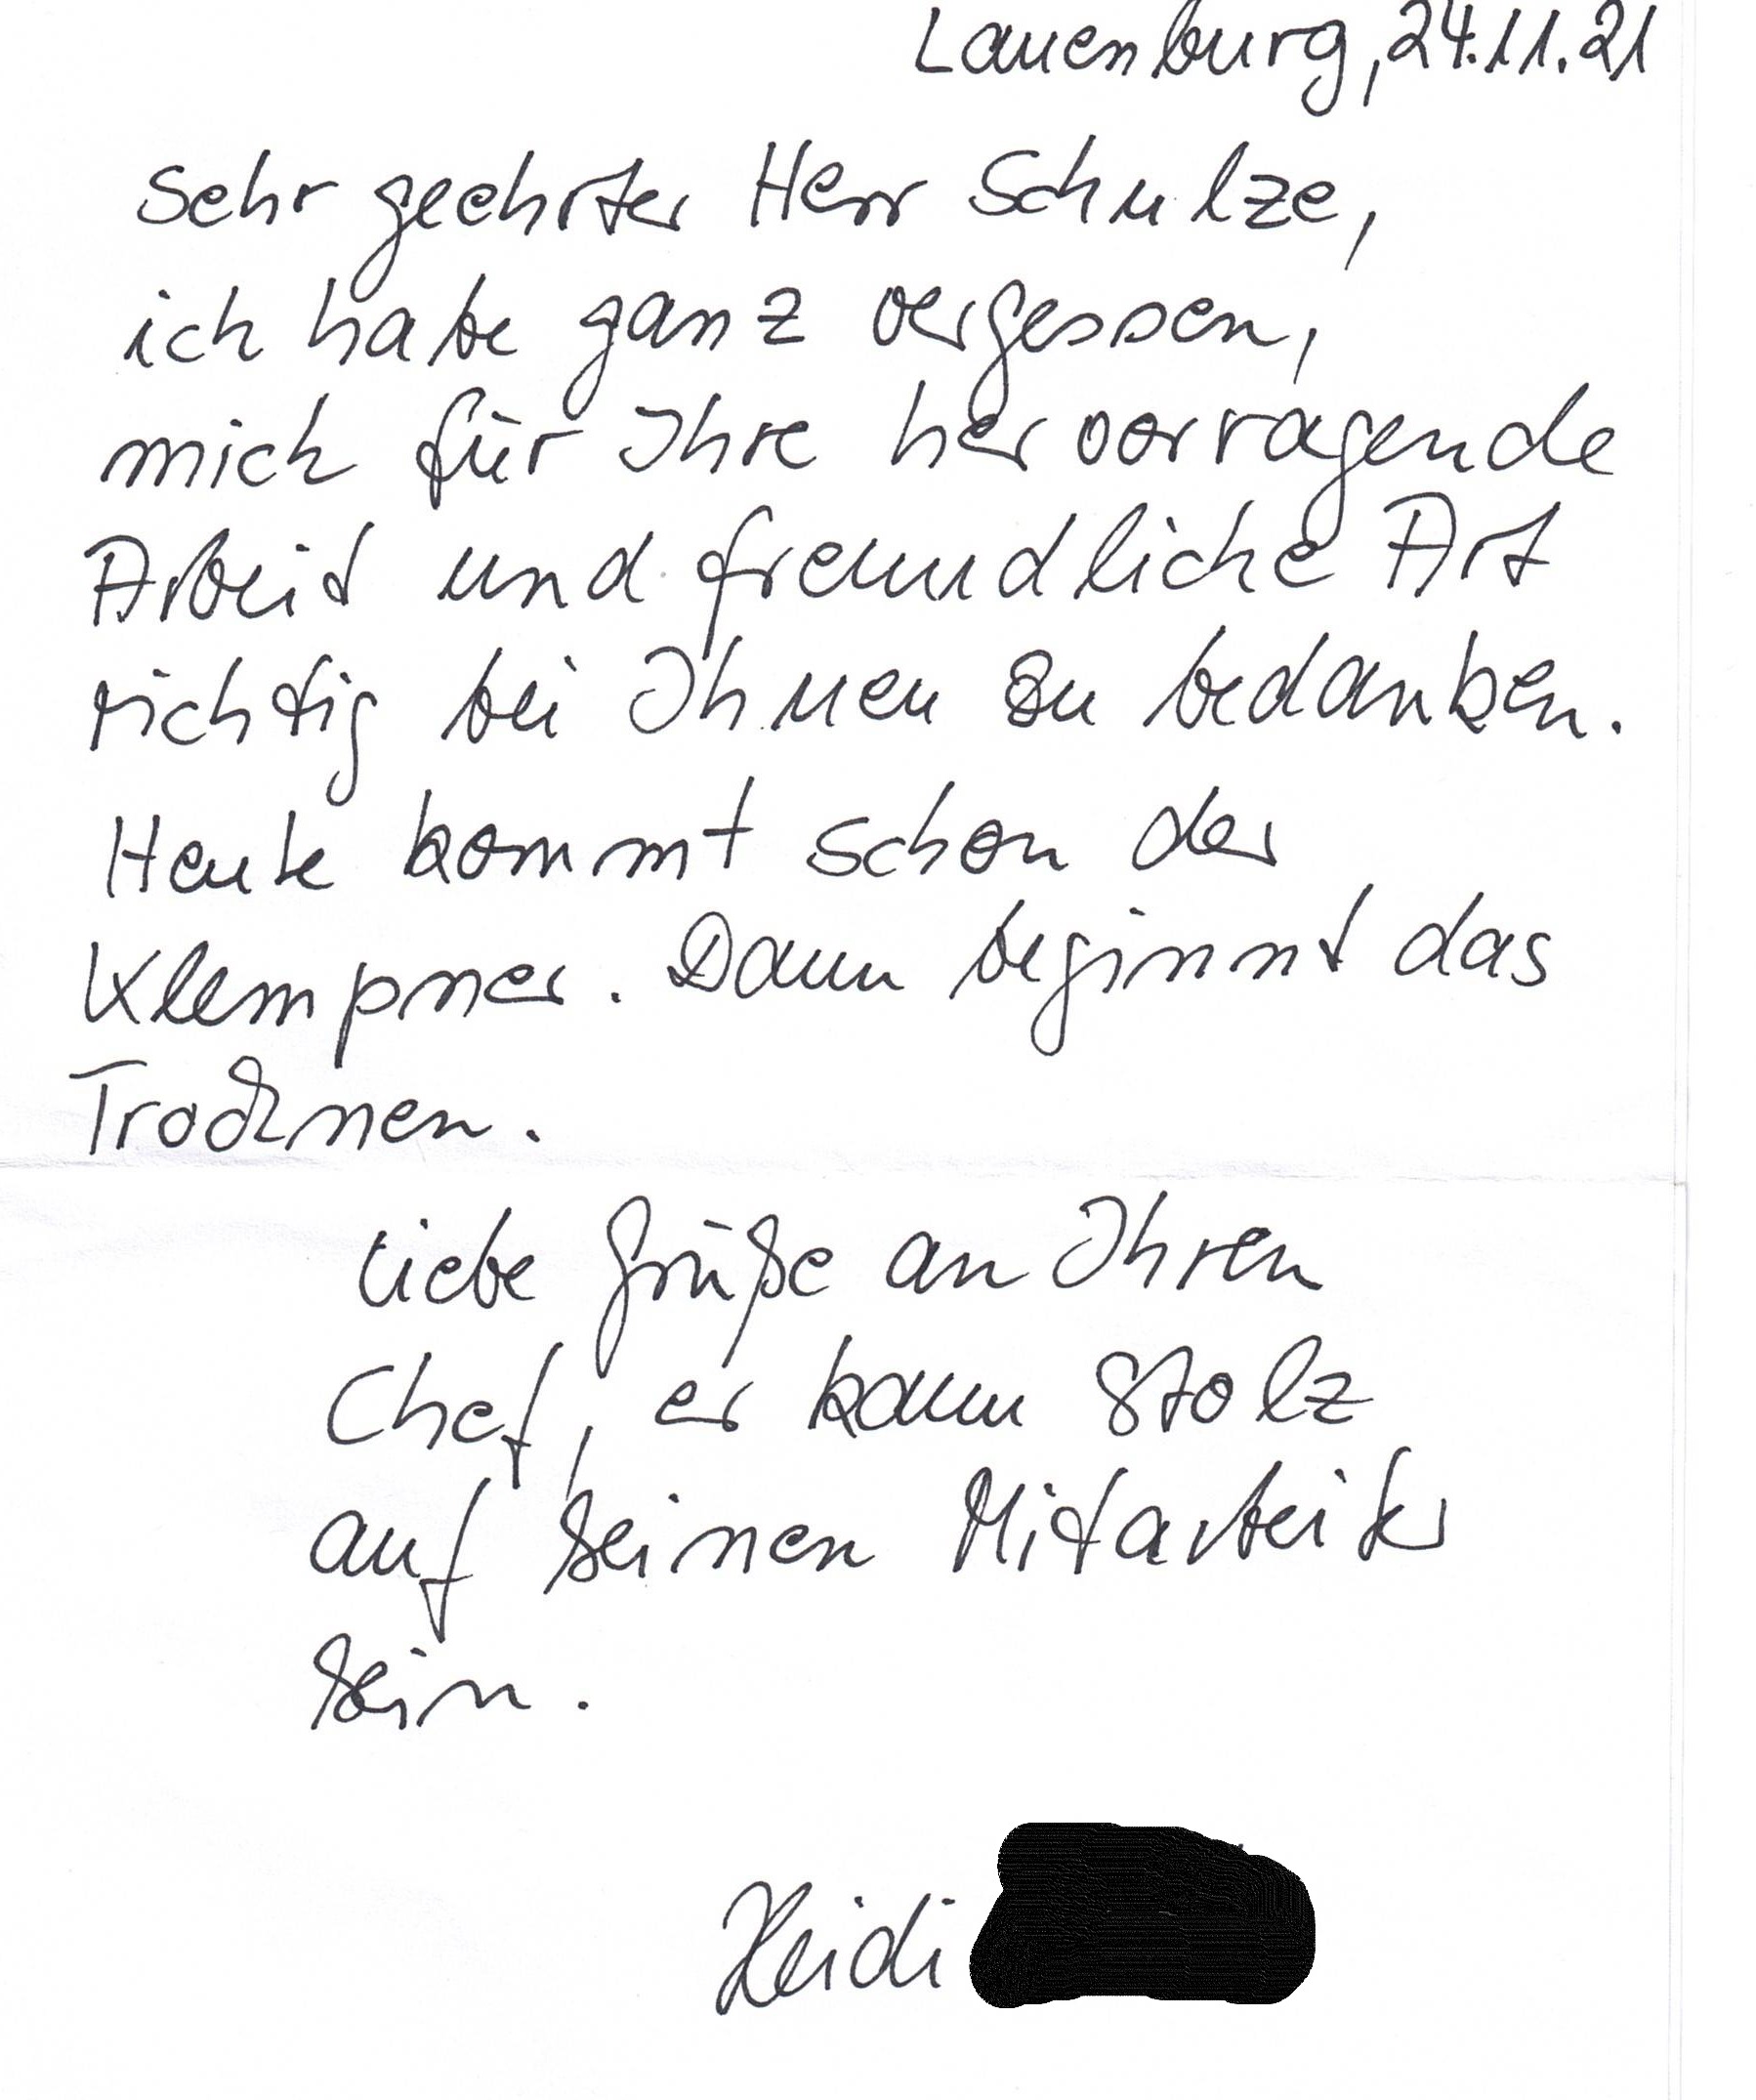 Lauenburg, 24.11.21
Sehr geehrter Herr Schulze,
ich habe ganz vergessen,
mich für Ihre hervorragende
Arbeit und freundliche Art
richtig bei Ihnen zu bedanken.
Heute kommt schon der
Klempner. Dann beginnt das
Trocknen.
Liebe Grüße an Ihren
Chef, er kann stolz
auf seinen Mitarbeiter
sein.
Heidi